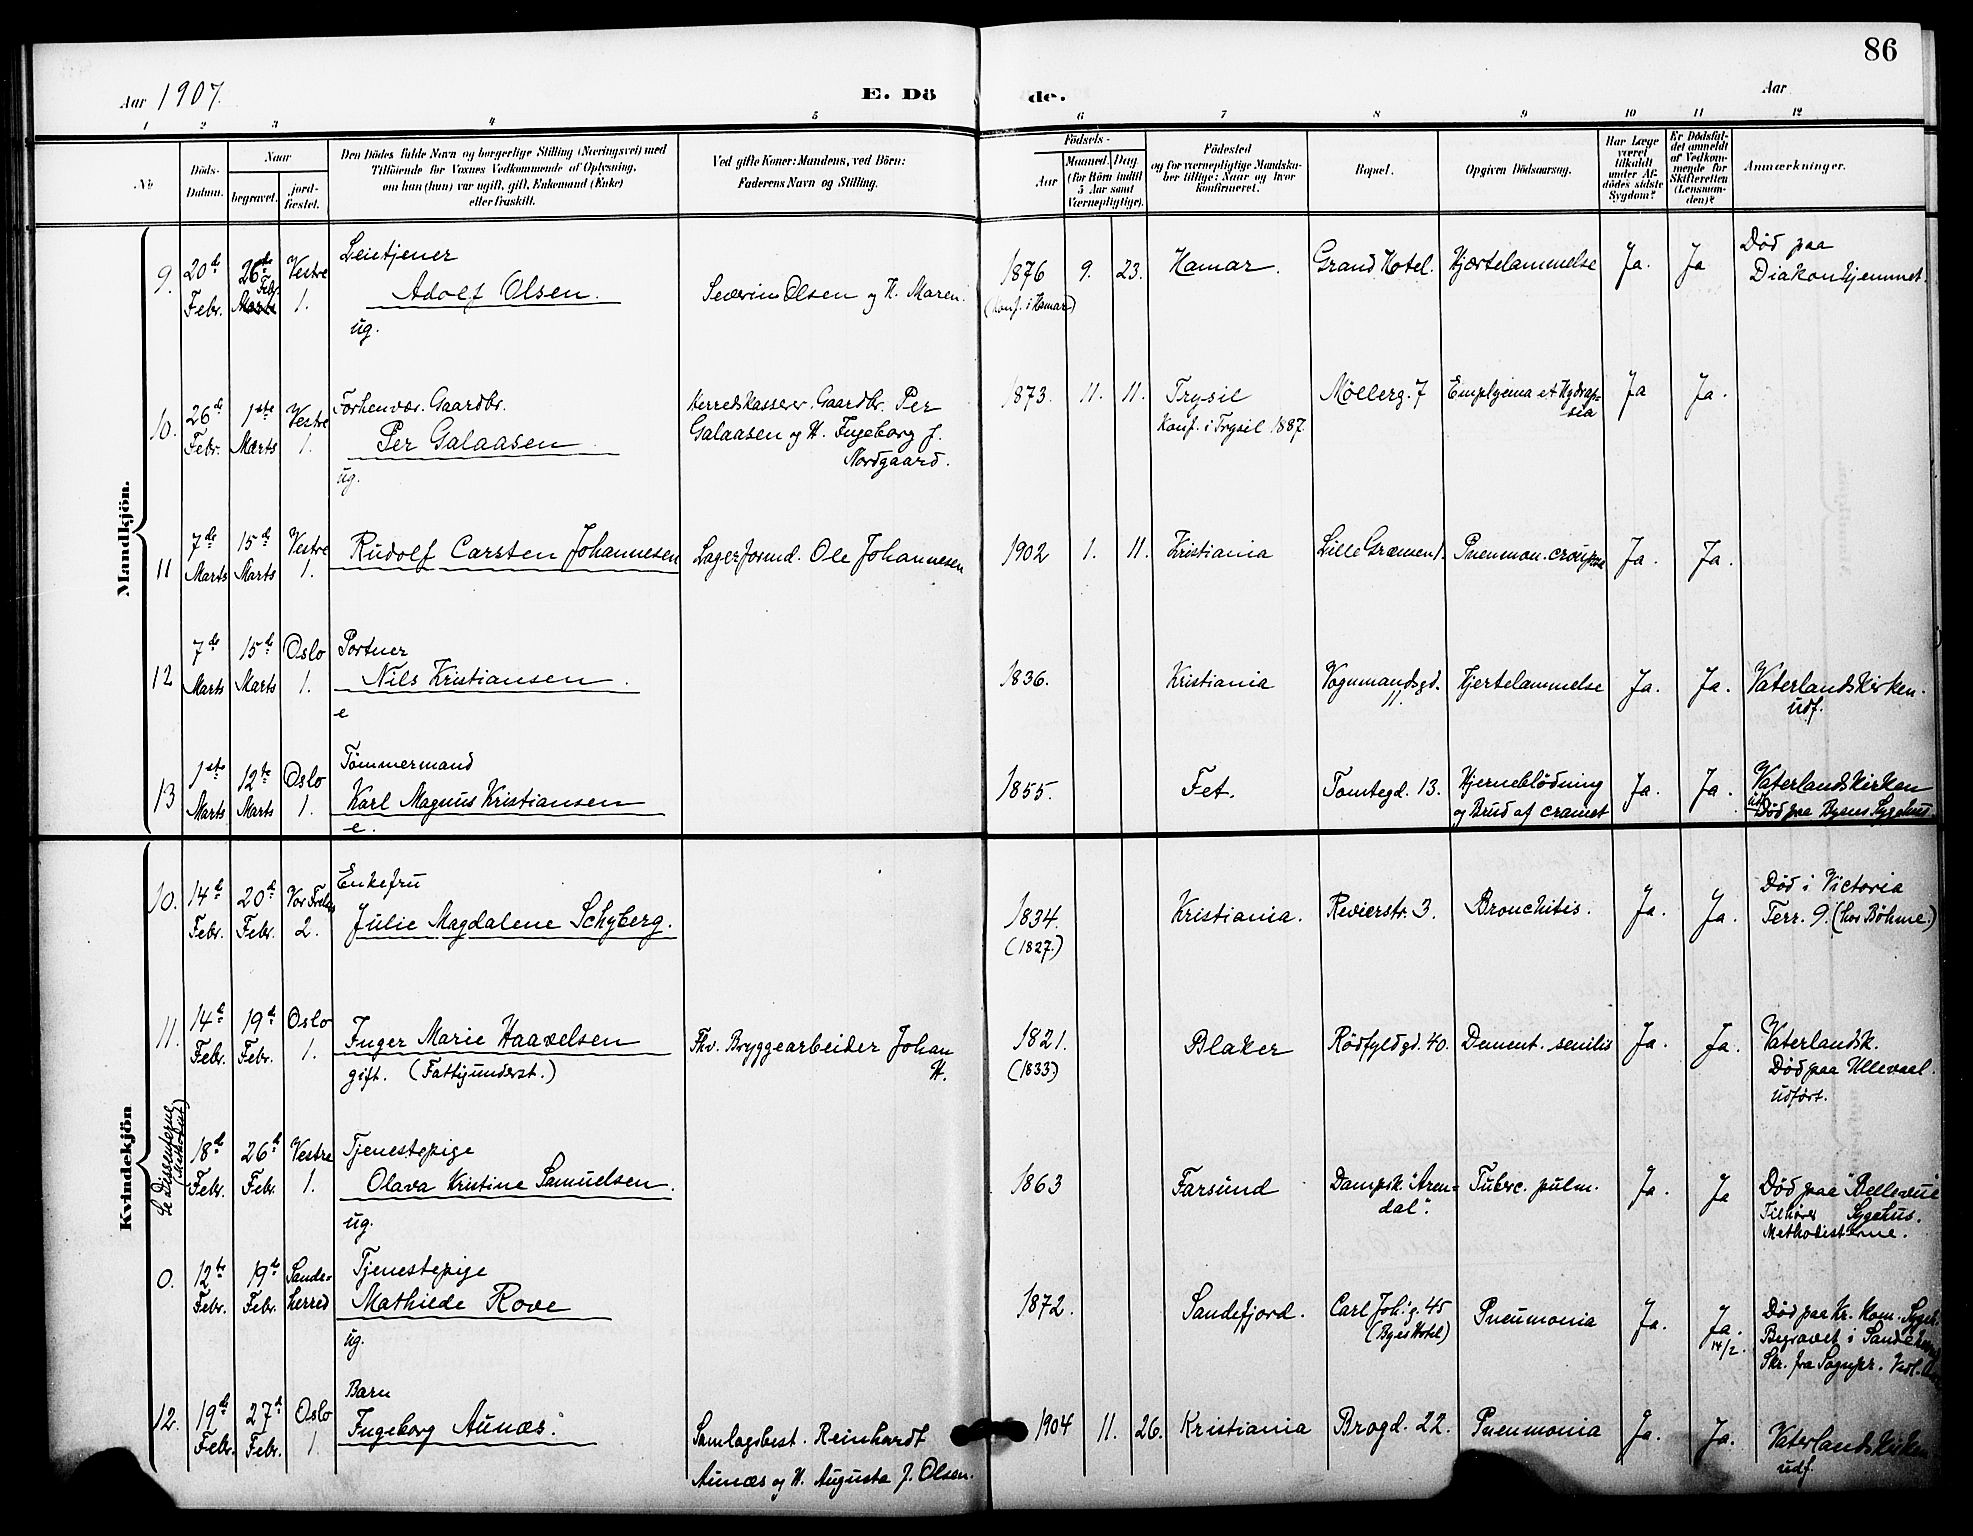 86
Aar 1907.
E. Dö
de.
Aar
1 2 3 4 5 6 7 8 9 10 11 12
No
Döds-
Datum.
Naar
begravet.
jord-
fæstet.
Den Dödes fulde Navn og borgerlige Stilling (Næringsvei) med
Tilföiende for Voxnes Vedkommende af Oplysning,
om han (hun) var ugift, gift, Enkemand (Enke)
eller fraskilt.
Ved gifte Koner: Mandens, ved Börn:
Faderens Navn og Stilling.
Födsels-
Aar
Maaned. Dag
(for Börn indtil
5 Aar samt
Værnepligtige).
Födested
og for værnepligtige Mandska-
ber tillige: Naar og hvor
konfirmeret.
Bopæl.
Opgiven Dödsaarsag.
Har Læge
været
tilkaldt
under Af-
dödes sidste
Sygdom?
Er Dödsfal-
det anmeldt
af Vedkom-
mende for
Skifteretten
(Lensman-
den)?
Anmærkninger.
Mandkjön.
9.
20de
Febr.
26de
Feb.
Marts
Vestre
1.
Leietjener
Adolf Olsen.
ug.
Severin Olsen og H. Maren.
1876 9. 23.
(Konf. i Hamar)
Hamar.
Grand Hotel.
Hjærtelammelse
Ja. Ja
Död paa
Diakonhjemmet.
10.
26de
Febr.
1ste
Marts
Vestre
1.
Forhenvær. Gaardbr.
Per Galaasen
ug.
Herredskasserer. Gaardbr. Per
Galaasen og H. Ingeborg f.
Nordgaard.
1873. 11. 11.
Trysil
Konf. i Trysil 1887.
Möllerg. 7
Emplyema et Hydrop-
sia
Ja Ja.
11
7de
Marts
15de
Marts
Vestre
1.
Rudolf Carsten Johannesen
Lagerformd. Ole Johannesen
1902 1. 11.
Kristiania
Lille Grænsen 1.
Pneumon. crouposa
Ja. Ja.
12
7de
Marts
15de
Marts
Oslo
1.
Portner
Nils Kristiansen.
e
1836.
Kristiania
Vognmandsgd.
11.
Hjertelammelse
Ja. Ja.
Vaterlandskirken.
udf.
13
1ste
Marts
12te
Marts
Oslo
1.
Tömmermand
Karl Magnus Kristiansen
e.
1855.
Fet.
Tomtegd. 13.
Hjerneblödning
og Brud af craniet
Ja. Ja.
Vaterlandskirken
udf.
Död paa Byens Sygehus.
Kvindekjön
10.
14de
Febr.
20de
Febr.
Vor Frelser
2.
Enkefru
Julie Magdalene Schyberg.
1834.
(1827.)
Kristiania.
Revierstr. 3.
Bronchitis.
Ja. Ja.
Död i Victoria
Terr. 9. (hos Böhme.)
11.
14de
Febr.
19de
Febr.
Oslo
1.
Inger Marie Haavelsen
gift. (Fattigunderst.)
Fhv. Bryggearbeider Johan
H.
1821.
(1833.)
Blaker
Rödfyldgd. 40.
Dement. senilis
Ja. Ja.
Vaterlandsk.
Död paa Ullevaal.
udfört.
Se Dissenterne
(Methodist)
18de
Febr.
26de
Febr.
Vestre
1.
Tjenestepige
Olava Kristine Samuelsen.
ug.
1863
Farsund
Dampsk. "Aren-
dal".
Tuberc. pulm.
Ja. Ja
Död paa "Bellevue"
Tilhörer Sygehus.
Methodisterne.
0.
12te
Febr.
19de
Febr.
Sande-
herred
Tjenestepige
Mathilde Rove
ug.
1872.
Sandefjord.
Carl Joh. g. 45
(Byes Hotel)
Pneumonia
Ja. Ja.
14/2.
Död paa Kr. Kom. Sygeh.
Begravet i Sandeherred
Skr. fra Sognepr.
12.
19de
Febr.
27de
Febr.
Oslo
1.
Barn
Ingeborg Aunæs.
Samlagsbest. Reinhardt
Aunæs og H. Augusta f. Olsen.
1904 11. 26.
Kristiania
Brogd. 22.
Pneumonia
Ja. Ja.
Vaterlandskirken
udf.